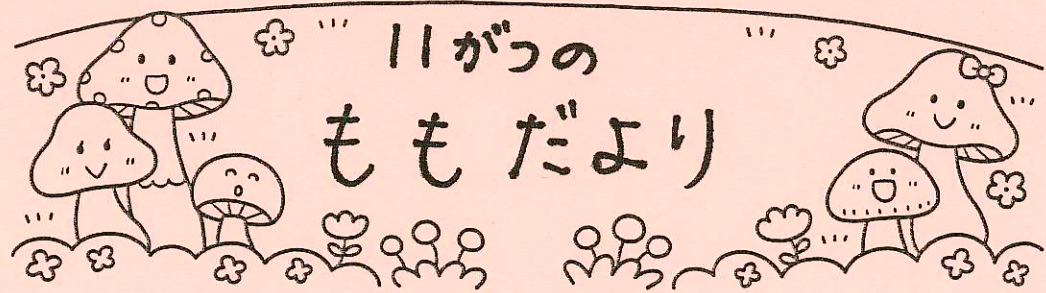 11がつの
ももだより